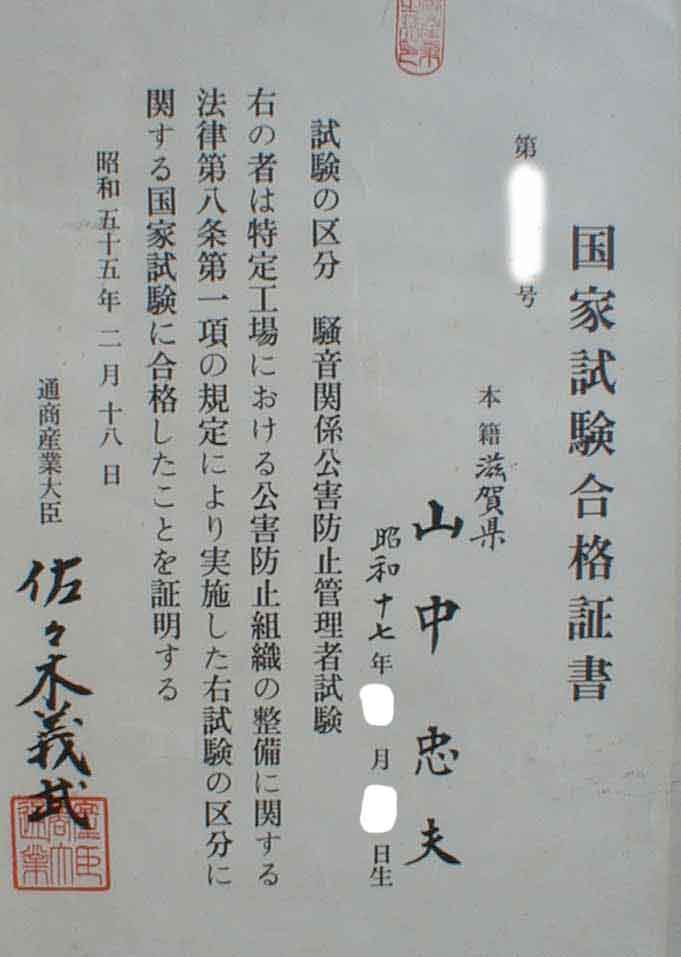 国家試験合格証書
第 号
本籍 滋賀県
山中忠夫
昭和十七年 月 日生
試験の区分 騒音関係公害防止管理者試験
右の者は特定工場における公害防止組織の整備に関する
法律第八条第一項の規定により実施した右試験の区分に
関する国家試験に合格したことを証明する
昭和五十五年二月十八日
通商産業大臣 佐々木義武